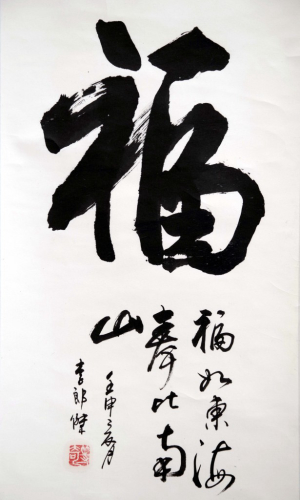 福
福如東海
壽比南
山
壬申
李郎傑